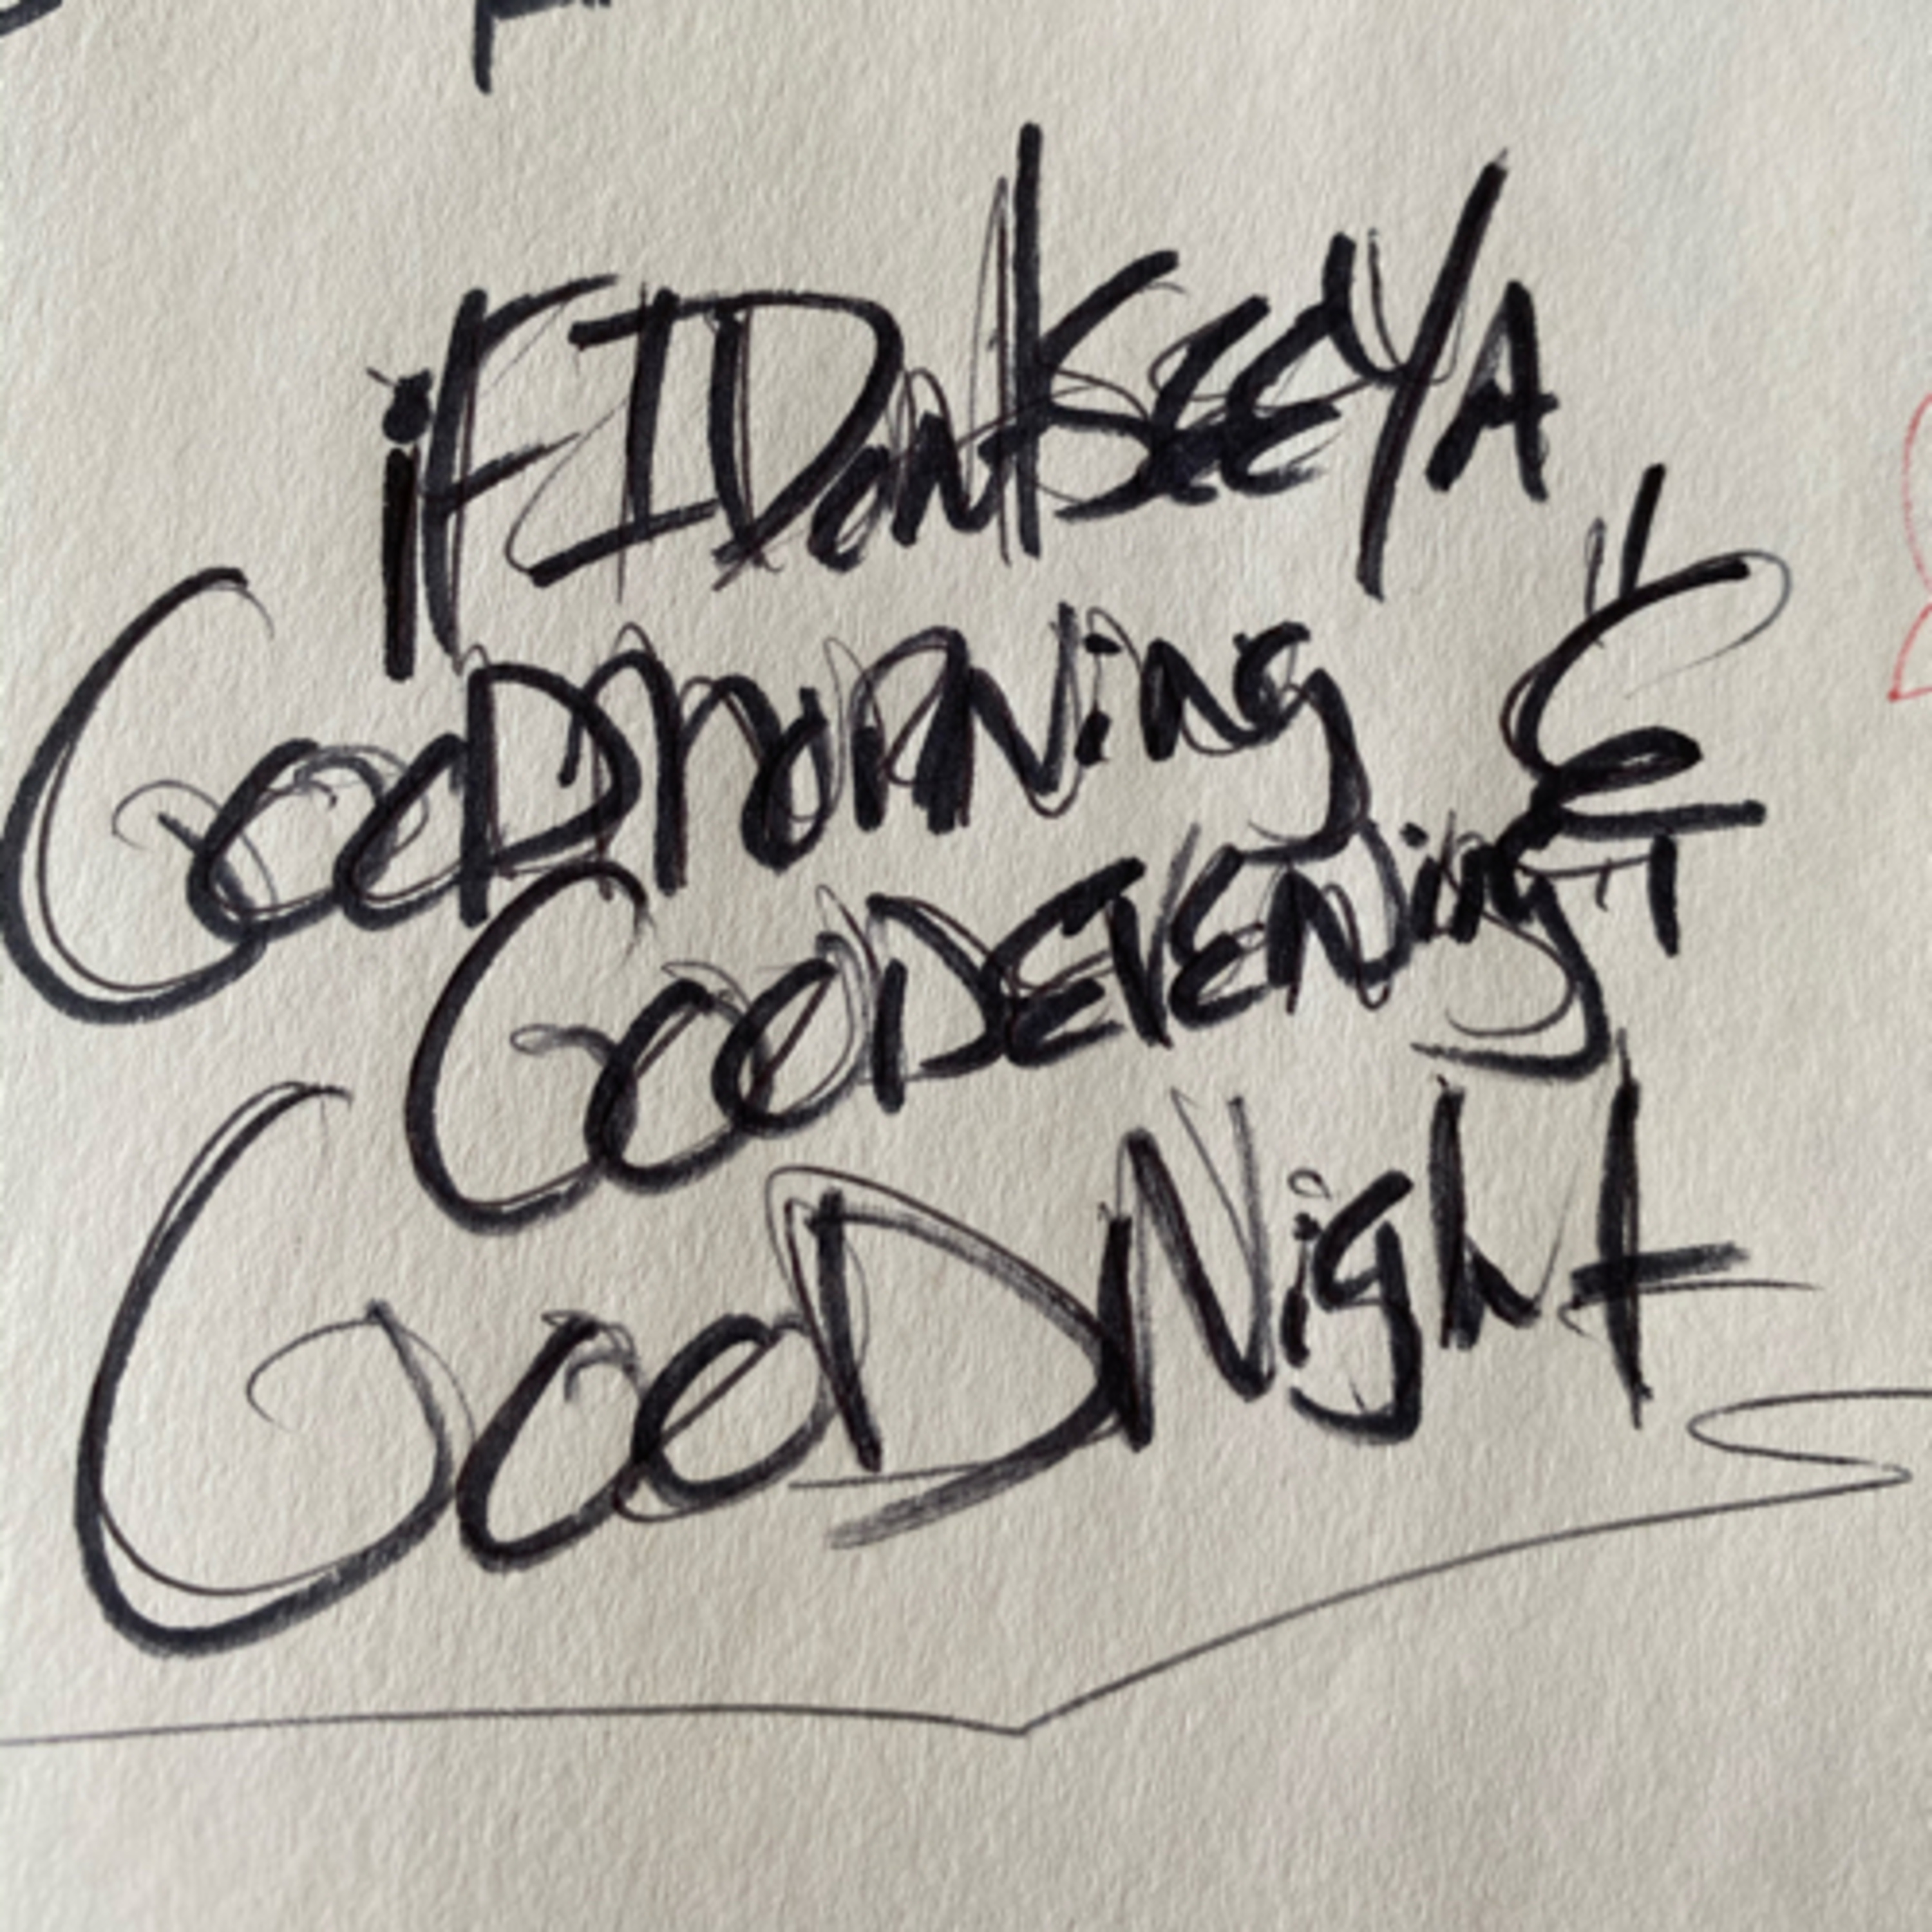 iF I DoNt SEE YA
GOOD MORNiNg &
GOOD EVENiNg
GOOD Night